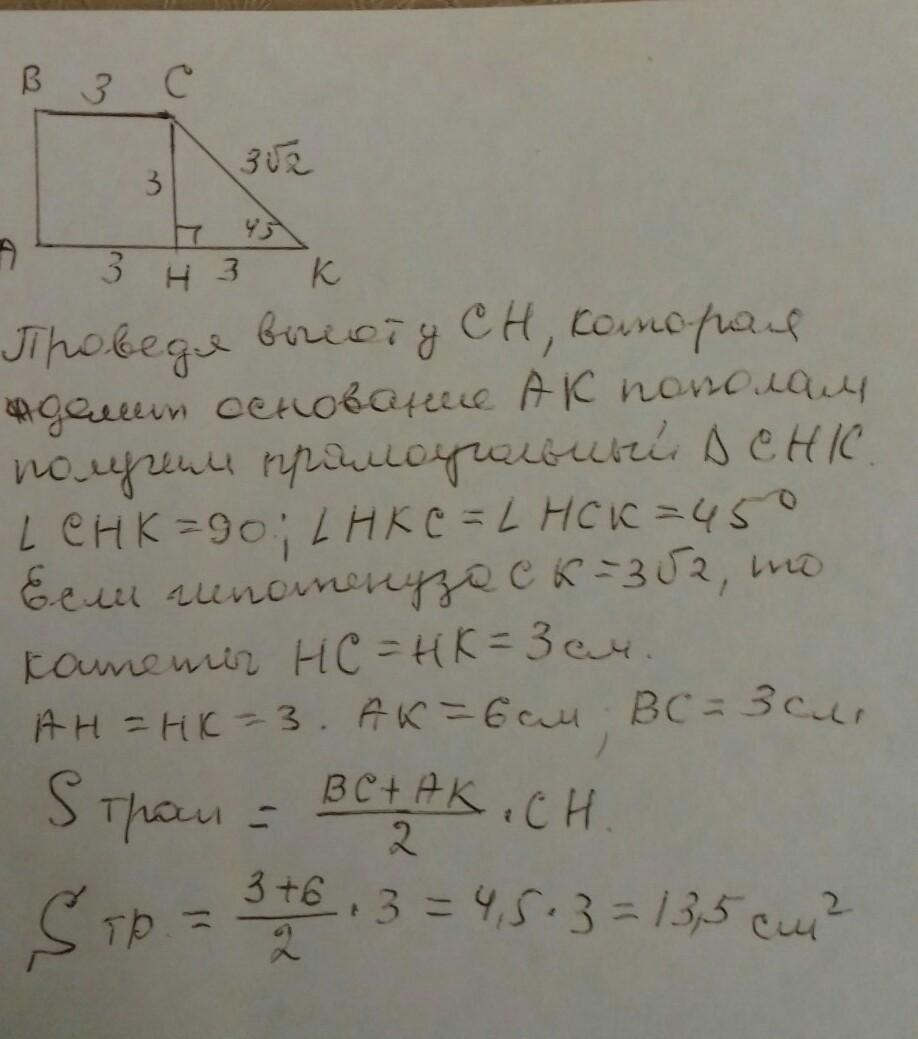 B 3 C
3√2
3
45
A 3 H 3 K
Проведя высоту CH, которая
делит основание AK пополам
получим прямоугольный Δ CHK.
∠ CHK = 90; ∠ HKC = ∠ HCK = 45°
Если гипотенуза CK = 3√2, то
катеты HC = HK = 3 см.
AH = HK = 3. AK = 6 см, BC = 3 см,
S трап = (BC + AK)/2 · CH.
S тр. = (3+6)/2 · 3 = 4,5 · 3 = 13,5 см²